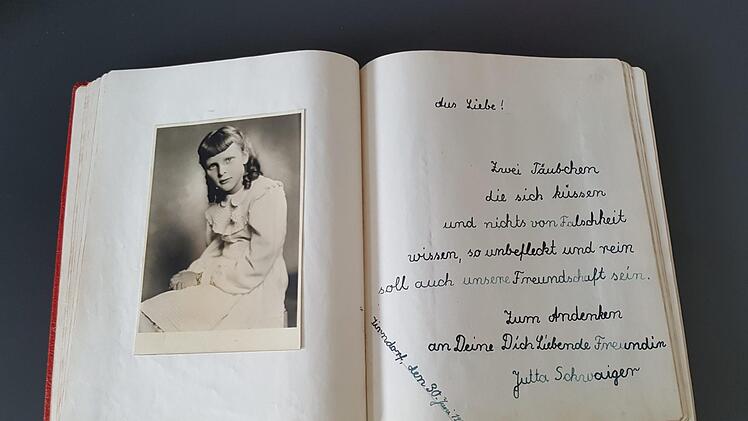 Aus Liebe!
Zwei Täubchen
die sich küssen
und nichts von Falschheit
wissen, so unbefleckt und rein
soll auch unsere Freundschaft sein.
Zum Andenken
an Deine Dich Liebende Freundin
Jutta Schwaiger
Zirndorf, den 30. Juni